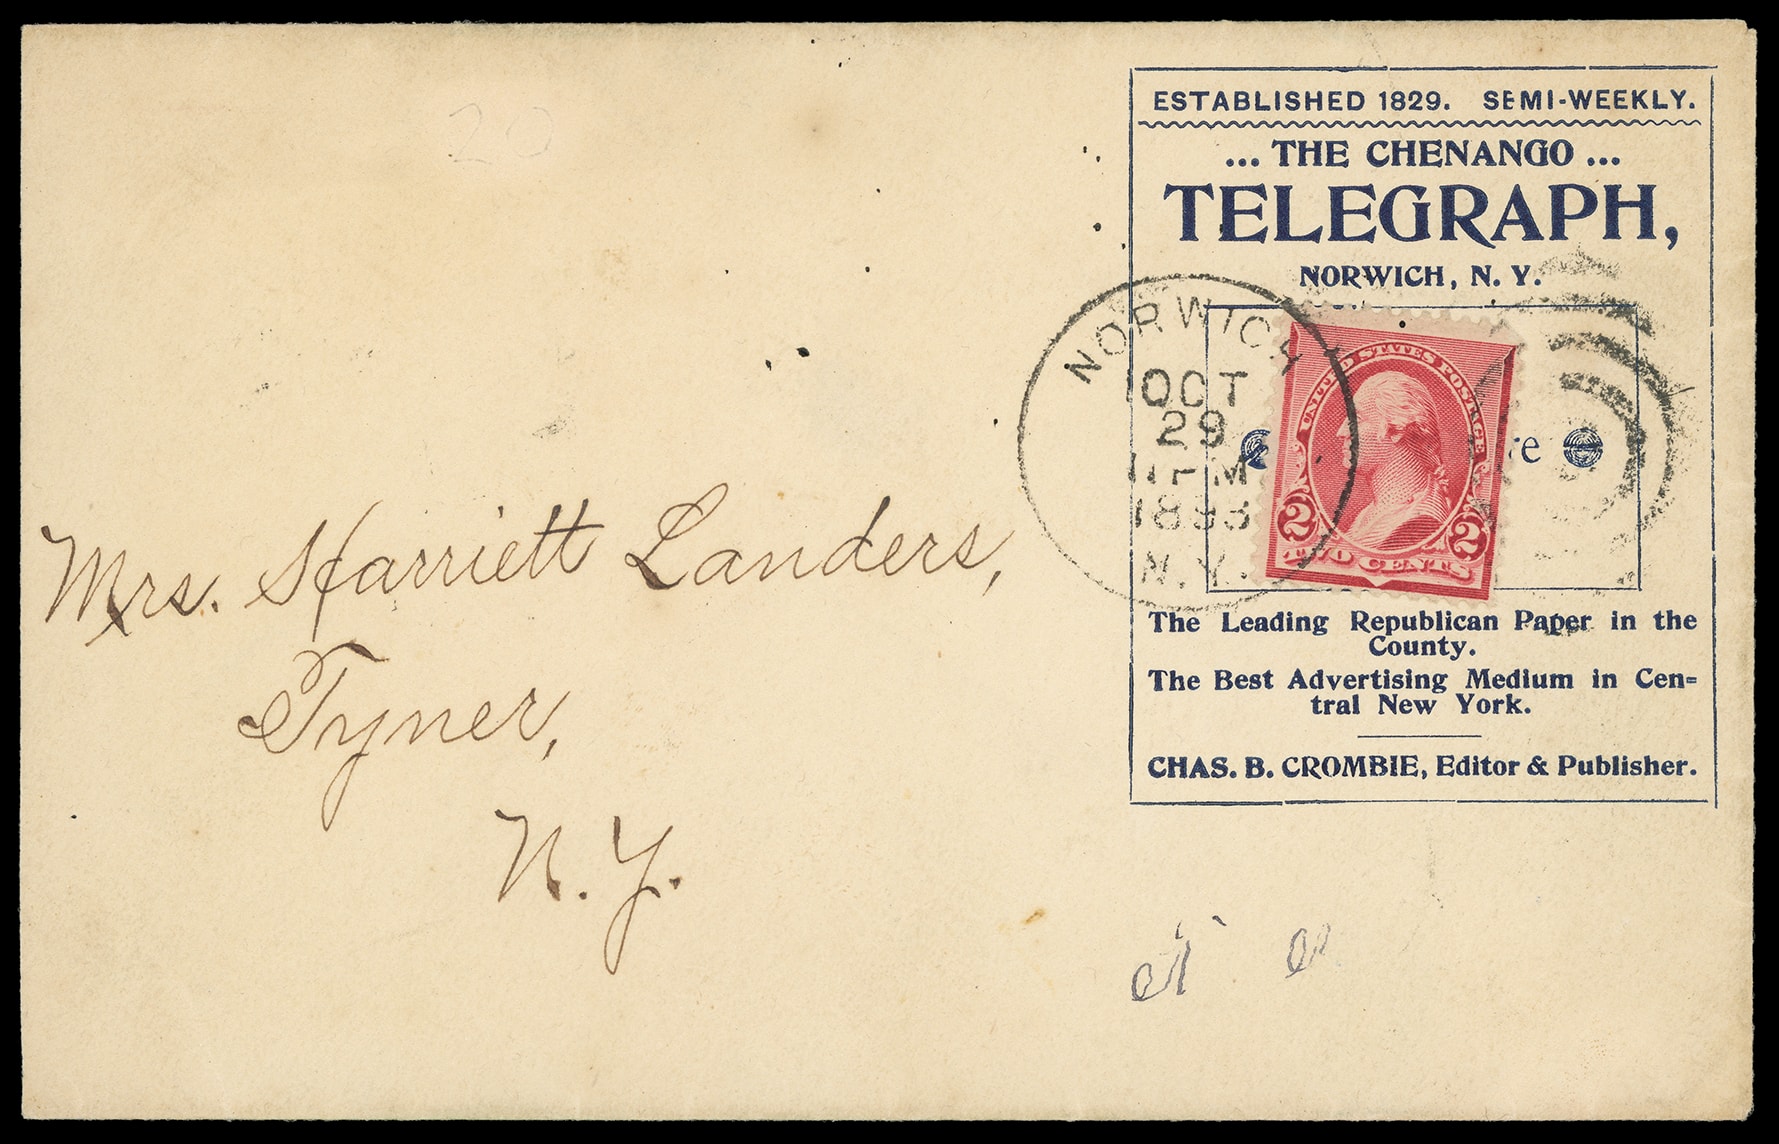 20
ESTABLISHED 1829. SEMI-WEEKLY.
... THE CHENANGO ...
TELEGRAPH,
NORWICH, N. Y.
NORWICH
OCT
29
PM
N.Y.
UNITED STATES POSTAGE
2 2
TWO CENTS
The Leading Republican Paper in the
County.
The Best Advertising Medium in Cen=
tral New York.
CHAS. B. CROMBIE, Editor & Publisher.
Mrs. Harriett Landers,
Tyner,
N. Y.